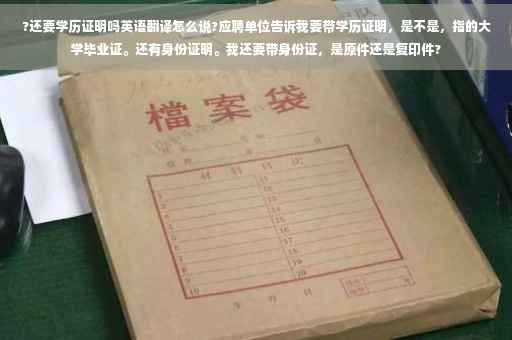 ?还要学历证明吗英语翻译怎么说?应聘单位告诉我要带学历证明，是不是，指的大
学毕业证。还有身份证明。我还要带身份证，是原件还是复印件?
檔案袋
材料目次
1 11
2 12
3 13
4 14
5 15
6 16
7 17
8 18
9 19
10 20
年 月 日